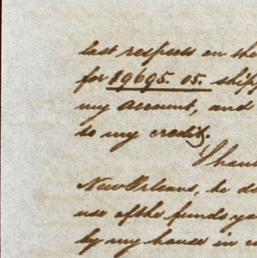 last respects on the
for 19695. 05. shipp
my account, and
to my credit.
Shoul
New Orleans, he do
use of the funds yo
by my house in c